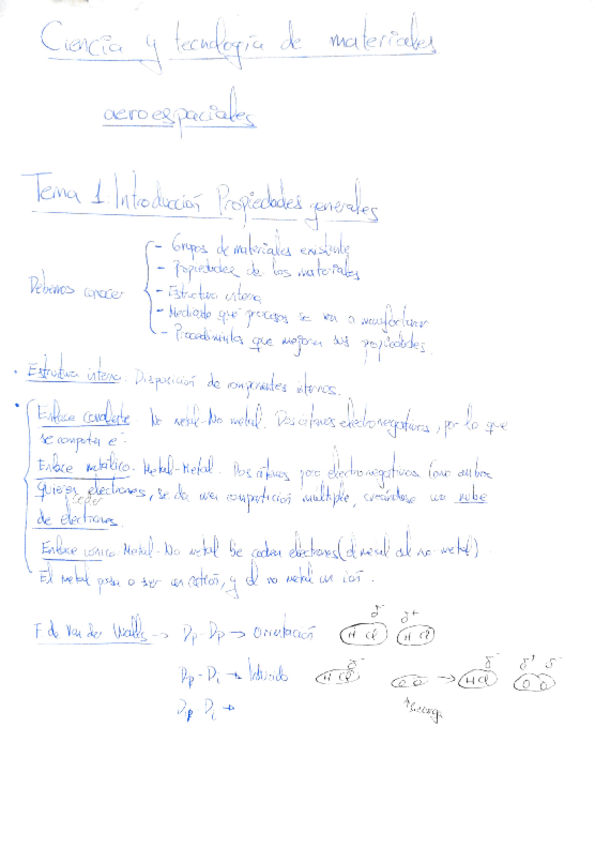 Ciencia y tecnología de materiales
aeroespaciales
Tema 1. Introducción Propiedades generales
Debemos conocer
- Grupos de materiales existente
- Propiedades de los materiales
- Estructura interna
- Mediante qué procesos se van a manufacturar
- Procedimientos que mejoran sus propiedades.
· Estructura interna. Disposición de componentes internos.
· Enlace covalente No metal-No metal. Dos átomos electronegativos, por lo que
se comparten e⁻.
Enlace metálico. Metal-Metal. Dos átomos poco electronegativos como ambos
quieren ceder electrones, se da una compartición múltiple, creándose una nube
de electrones.
Enlace iónico. Metal-No metal Se ceden electrones (del metal al no-metal)
El metal pasa a ser un catión, y el no metal un ión.
F de Van der Walls → Dp-Dp → Orientación H Cl δ⁻ H Cl δ⁺
Dp-Di → Inducido H Cl δ⁻ O O → H Cl δ⁻ O O δ⁺ δ⁻
Dip Di →